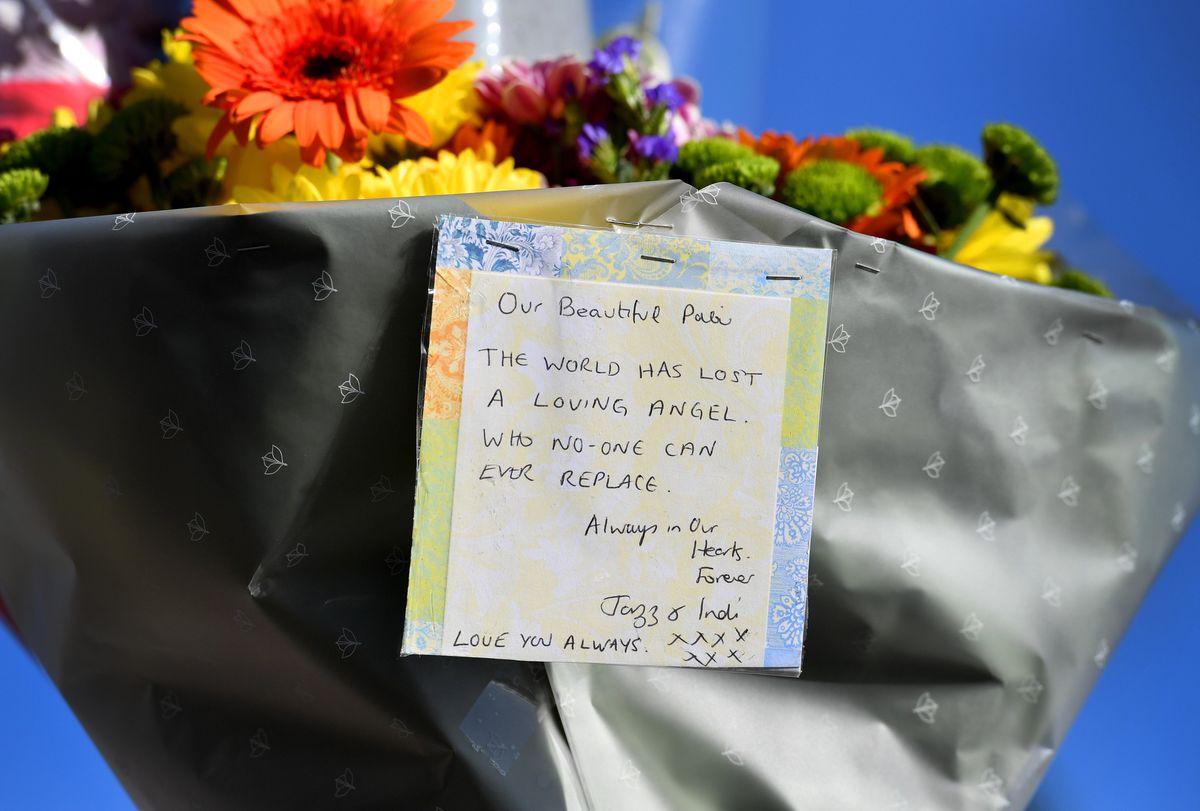 Our Beautiful Pabi
THE WORLD HAS LOST
A LOVING ANGEL.
WHO NO-ONE CAN
EVER REPLACE.
Always in Our
Hearts.
Forever
Jazz & Indi
LOVE YOU ALWAYS. x x x x
x x x